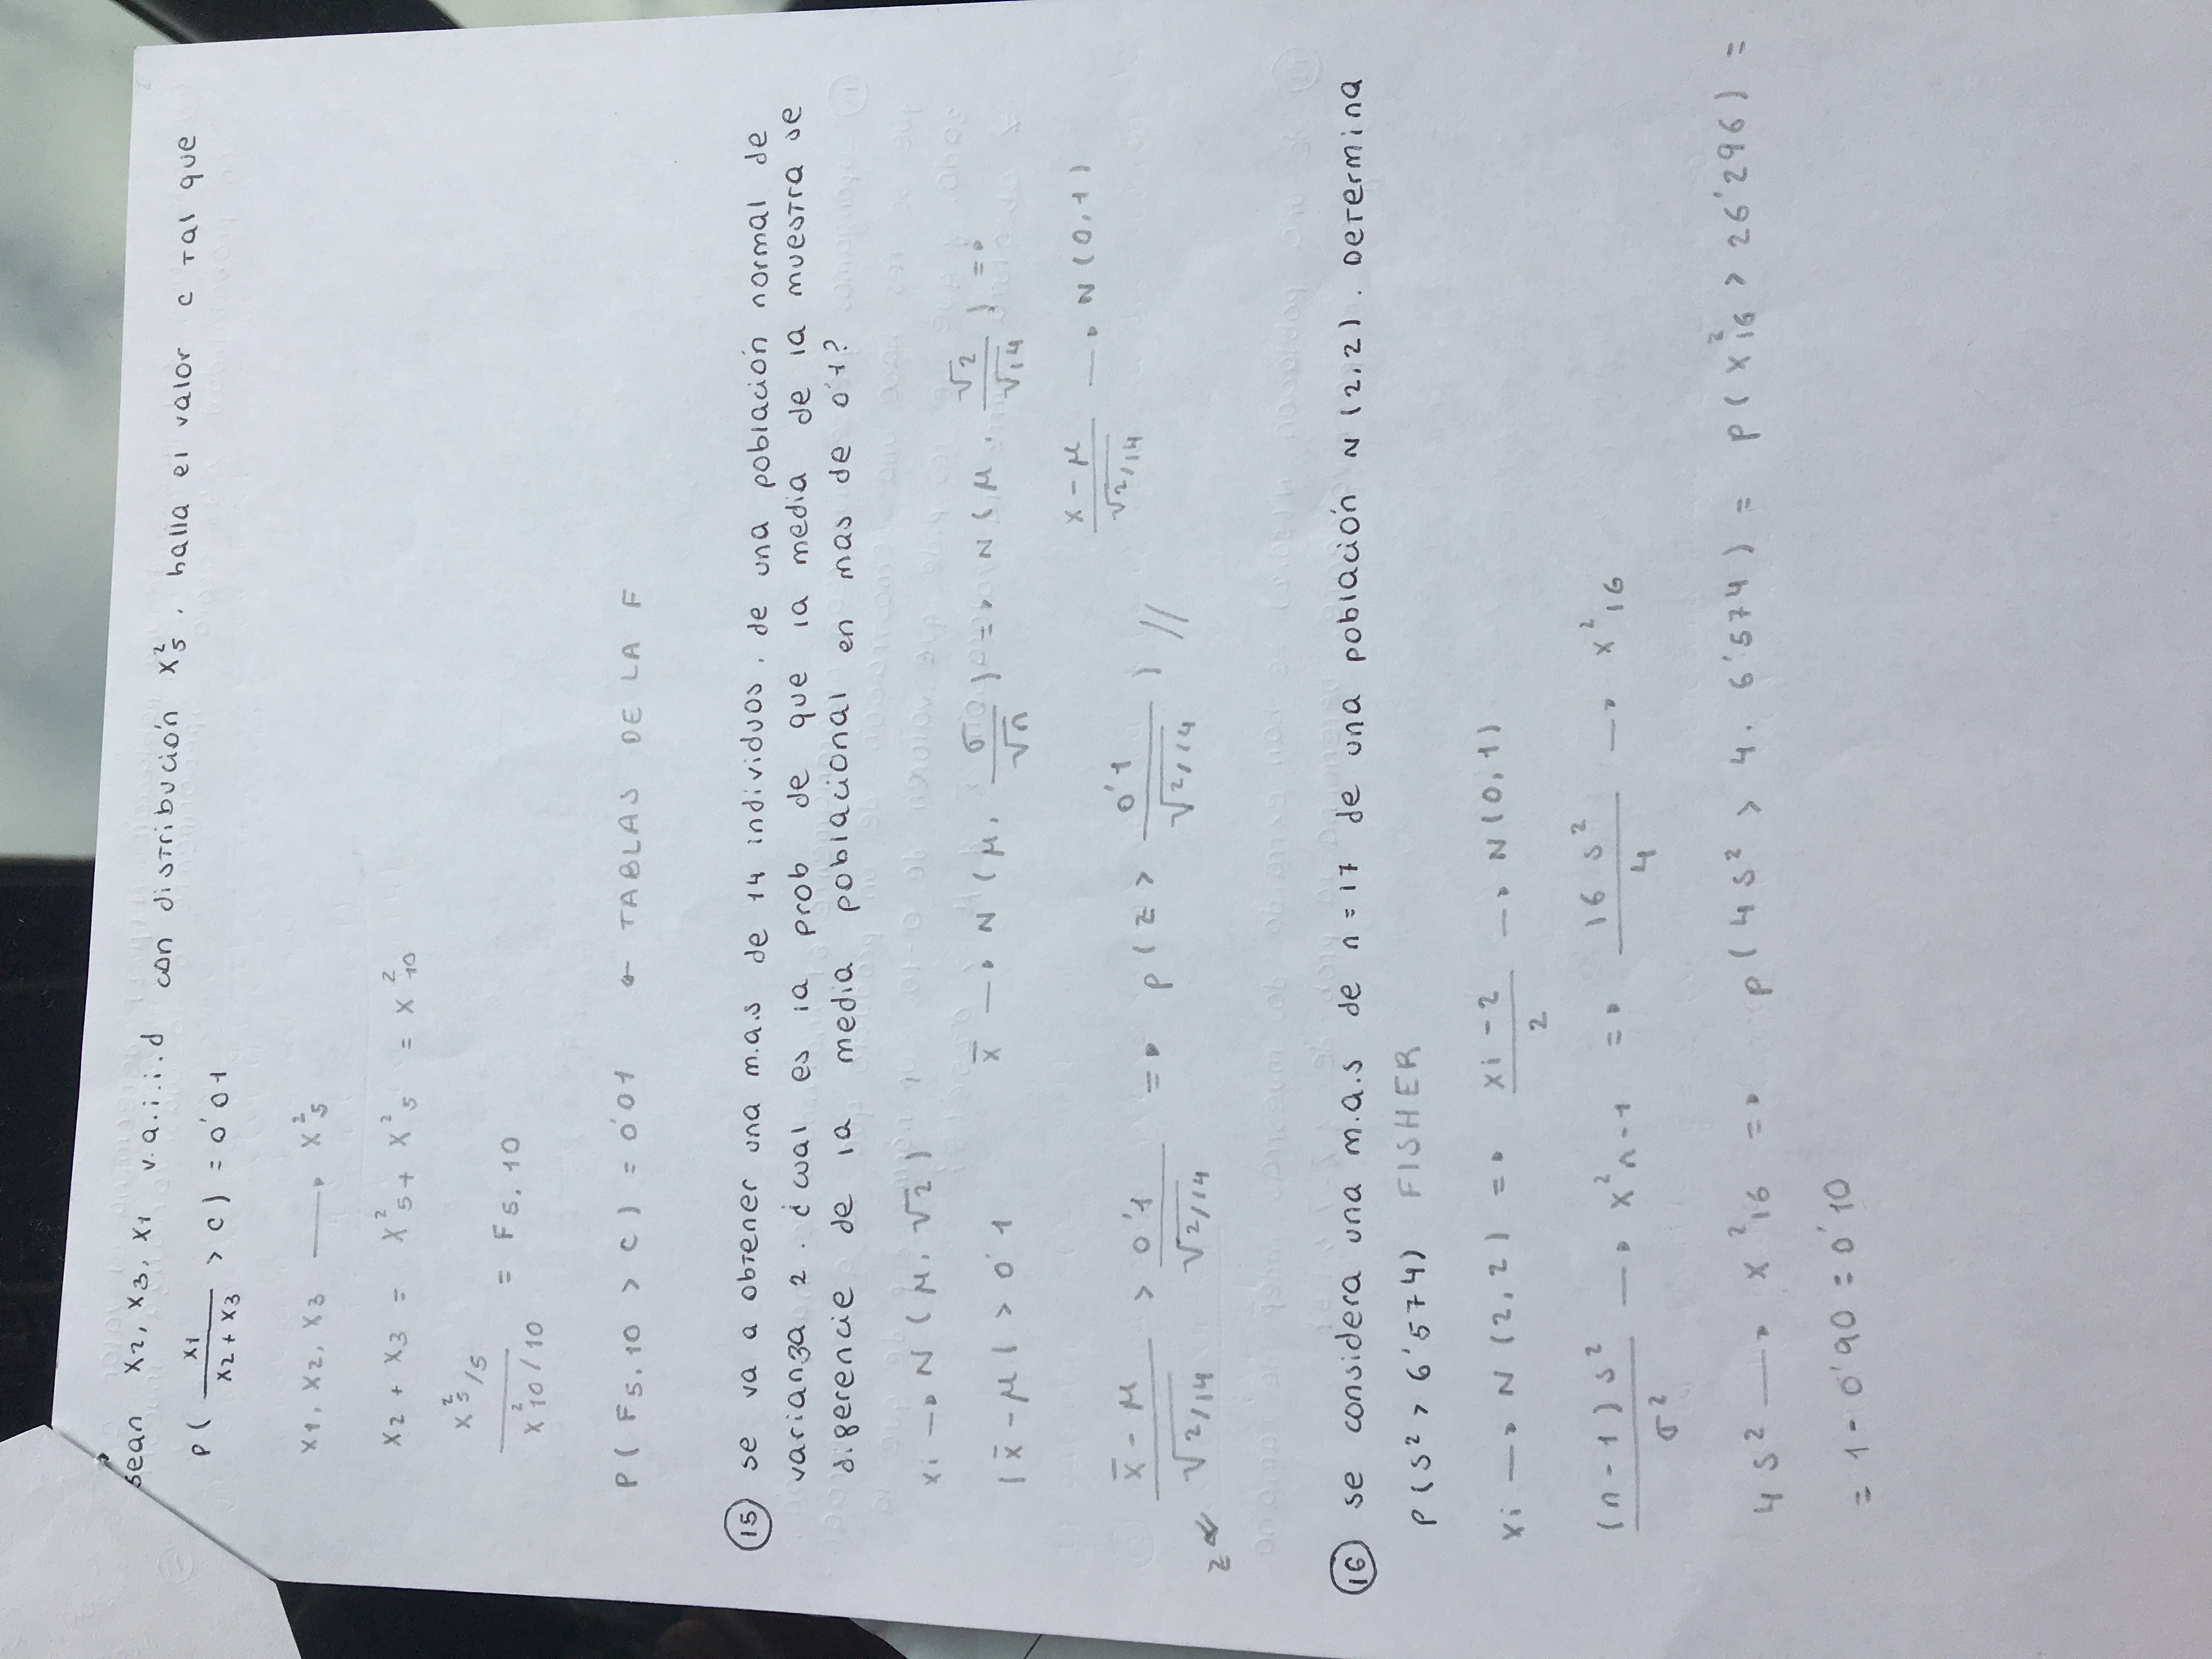 sean x2, x3, x1 v.a.i.i.d con distribución x²5. halla el valor c tal que
P( x1 / x2 + x3 > c ) = 0'01
x1, x2, x3 → x²5
x2 + x3 = x²5 + x²5 = x²10
x²5/5 / x²10/10 = F5,10
P( F5,10 > c ) = 0'01 ← TABLAS DE LA F
15 se va a obtener una m.a.s de 14 individuos, de una población normal de
varianza 2. ¿cual es la prob de que la media de la muestra se
diferencie de la media poblacional en mas de 0'1?
xi → N ( μ, √2 )
|x̄ - μ| > 0'1 x̄ → N ( μ, σ/√n ) => N ( μ, √2/√14 ) =>
x - μ / √2/14 → N(0,1)
x̄ - μ / √2/14 > 0'1 / √2/14 => p ( z > 0'1 / √2/14 ) //
z
16 se considera una m.a.s de n = 17 de una población N (2,2). Determina
P(s² > 6'574) FISHER
xi → N (2,2) => xi - 2 / 2 → N(0,1)
(n-1) s² / σ² → x²n-1 => 16 s² / 4 → x²16
4s² → x²16 => p ( 4s² > 4 . 6'574 ) = p ( x²16 > 26'296 ) =
= 1 - 0'90 = 0'10